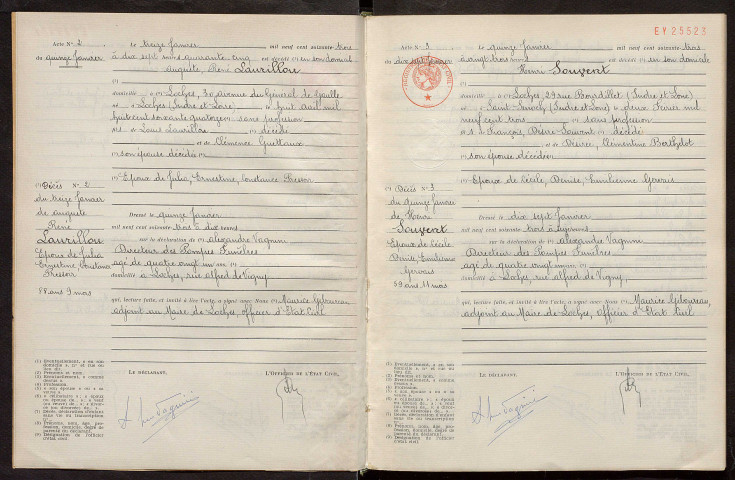 Acte N° 2 Le treize Janvier mil neuf cent soixante-trois
du quinze Janvier à dix sept heures quarante cinq est décédé en son domicile
Auguste, René Laurillou
domicilié à Loches, 30 avenue du Général de Gaulle
né à Loches (Indre et Loire) le huit avril mil
huit cent soixante quatorze sans profession
fils de Louis Laurillou décédé
et de Clémence Guellaux
son épouse décédée
Epoux de Julia, Ernestine, Constance Bresson
(7) Décès N° 2
du treize Janvier
de Auguste
René
Laurillou
Epoux de Julia
Ernestine, Constance
Bresson
88 ans 9 mois
Dressé le quinze Janvier
mil neuf cent soixante trois à dix heures
sur la déclaration de Alexandre Vagnini
Directeur des Pompes Funèbres
âgé de quatre vingt un ans
domicilié à Loches, rue Alfred de Vigny
qui, lecture faite, et invité à lire l'acte, a signé avec Nous Maurice Giloureau,
adjoint au Maire de Loches, officier d'Etat Civil
(1) Eventuellement, « en son
domicile », n° et rue ou
lieu dit.
(2) Prénoms et nom.
(3) Eventuellement, « comme
dessus ».
(4) Profession.
LE DÉCLARANT,
L'OFFICIER DE L'ÉTAT CIVIL,
EY 25523
Acte N° 3 Le quinze Janvier mil neuf cent soixante-trois
du dix sept Janvier à vingt trois heures est décédé en son domicile
Henri Souvent
domicilié à Loches, 29 rue Bourdillet (Indre et Loire)
né à Saint-Senoch (Indre et Loire) le deux Février mil
neuf cent trois sans profession
fils de François, Désiré Souvent décédé
et de Désirée, Clémentine Berthelot
son épouse décédée
Epoux de Cécile, Denise, Emilienne Gervais
(7) Décès N° 3
du quinze Janvier
de Henri
Souvent
Epoux de Cécile
Denise, Emilienne
Gervais
59 ans 11 mois
Dressé le dix sept Janvier
mil neuf cent soixante trois à heures
sur la déclaration de Alexandre Vagnini
Directeur des Pompes Funèbres
âgé de quatre vingt un ans
domicilié à Loches, rue Alfred de Vigny
qui, lecture faite, et invité à lire l'acte, a signé avec Nous Maurice Giloureau,
adjoint au Maire de Loches, officier d'Etat Civil
(1) Eventuellement, « en son
domicile », n° et rue ou
lieu dit.
(2) Prénoms et nom.
(3) Eventuellement, « comme
dessus ».
(4) Profession.
LE DÉCLARANT,
L'OFFICIER DE L'ÉTAT CIVIL,